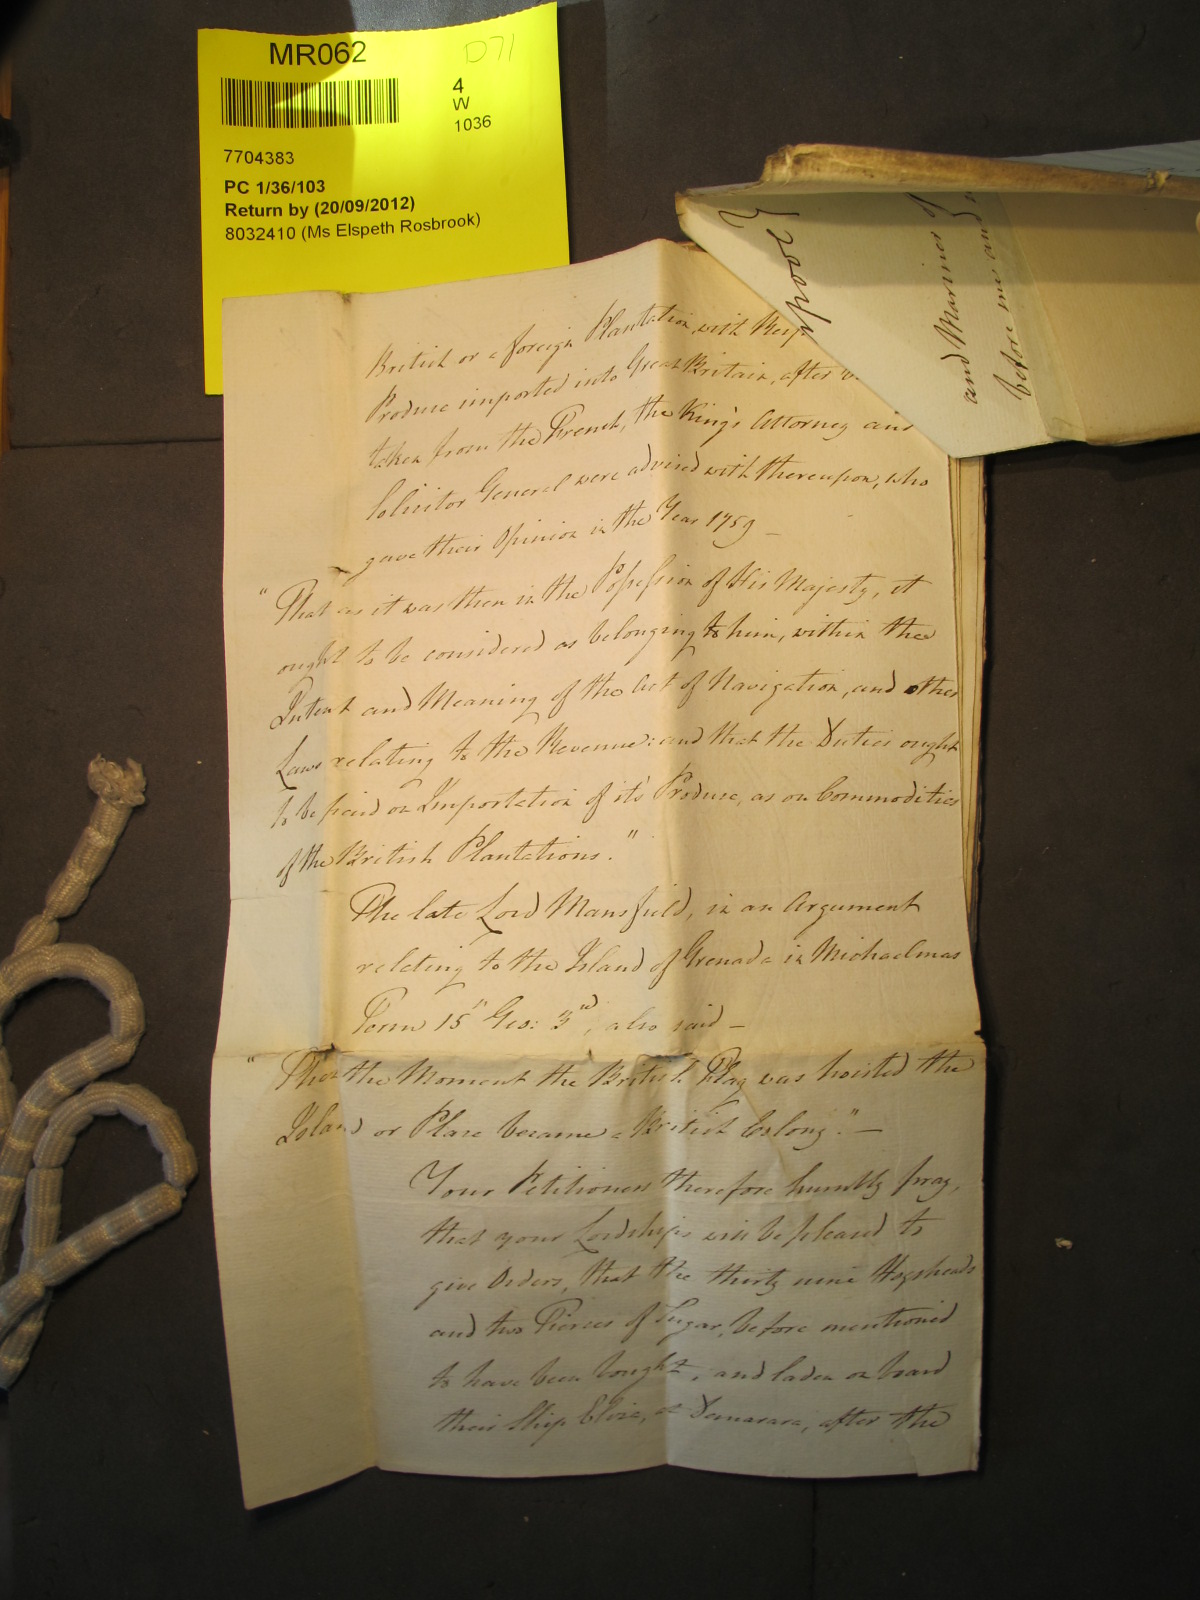 MR062
D71
4
W
1036
7704383
PC 1/36/103
Return by (20/09/2012)
8032410 (Ms Elspeth Rosbrook)
pool
and Mariner of
before me and
British or a foreign Plantation, with Resp
Produce imported into Great Britain, after
taken from the French, the King's Attorney and
Solicitor General were advised with thereupon, who
gave their Opinion in the Year 1759 —
"That as it was then in the Possession of His Majesty, it
ought to be considered as belonging to him, within the
Intent and Meaning of the Act of Navigation, and other
Laws relating to the Revenue: and that the Duties ought
to be paid on Importation of it's Produce, as on Commodities
of the British Plantations."
The late Lord Mansfield, in an Argument
relating to the Island of Grenada in Michaelmas
Term 15th Geo: 3rd, also said —
"That the Moment the British Flag was hoisted the
Island or Place became a British Colony." —
Your Petitioners therefore humbly pray,
that your Lordships will be pleased to
give Orders, that the thirty nine Hogsheads
and two Tierces of Sugar, before mentioned
to have been bought, and laden on board
their Ship Eliza, at Demarara, after the